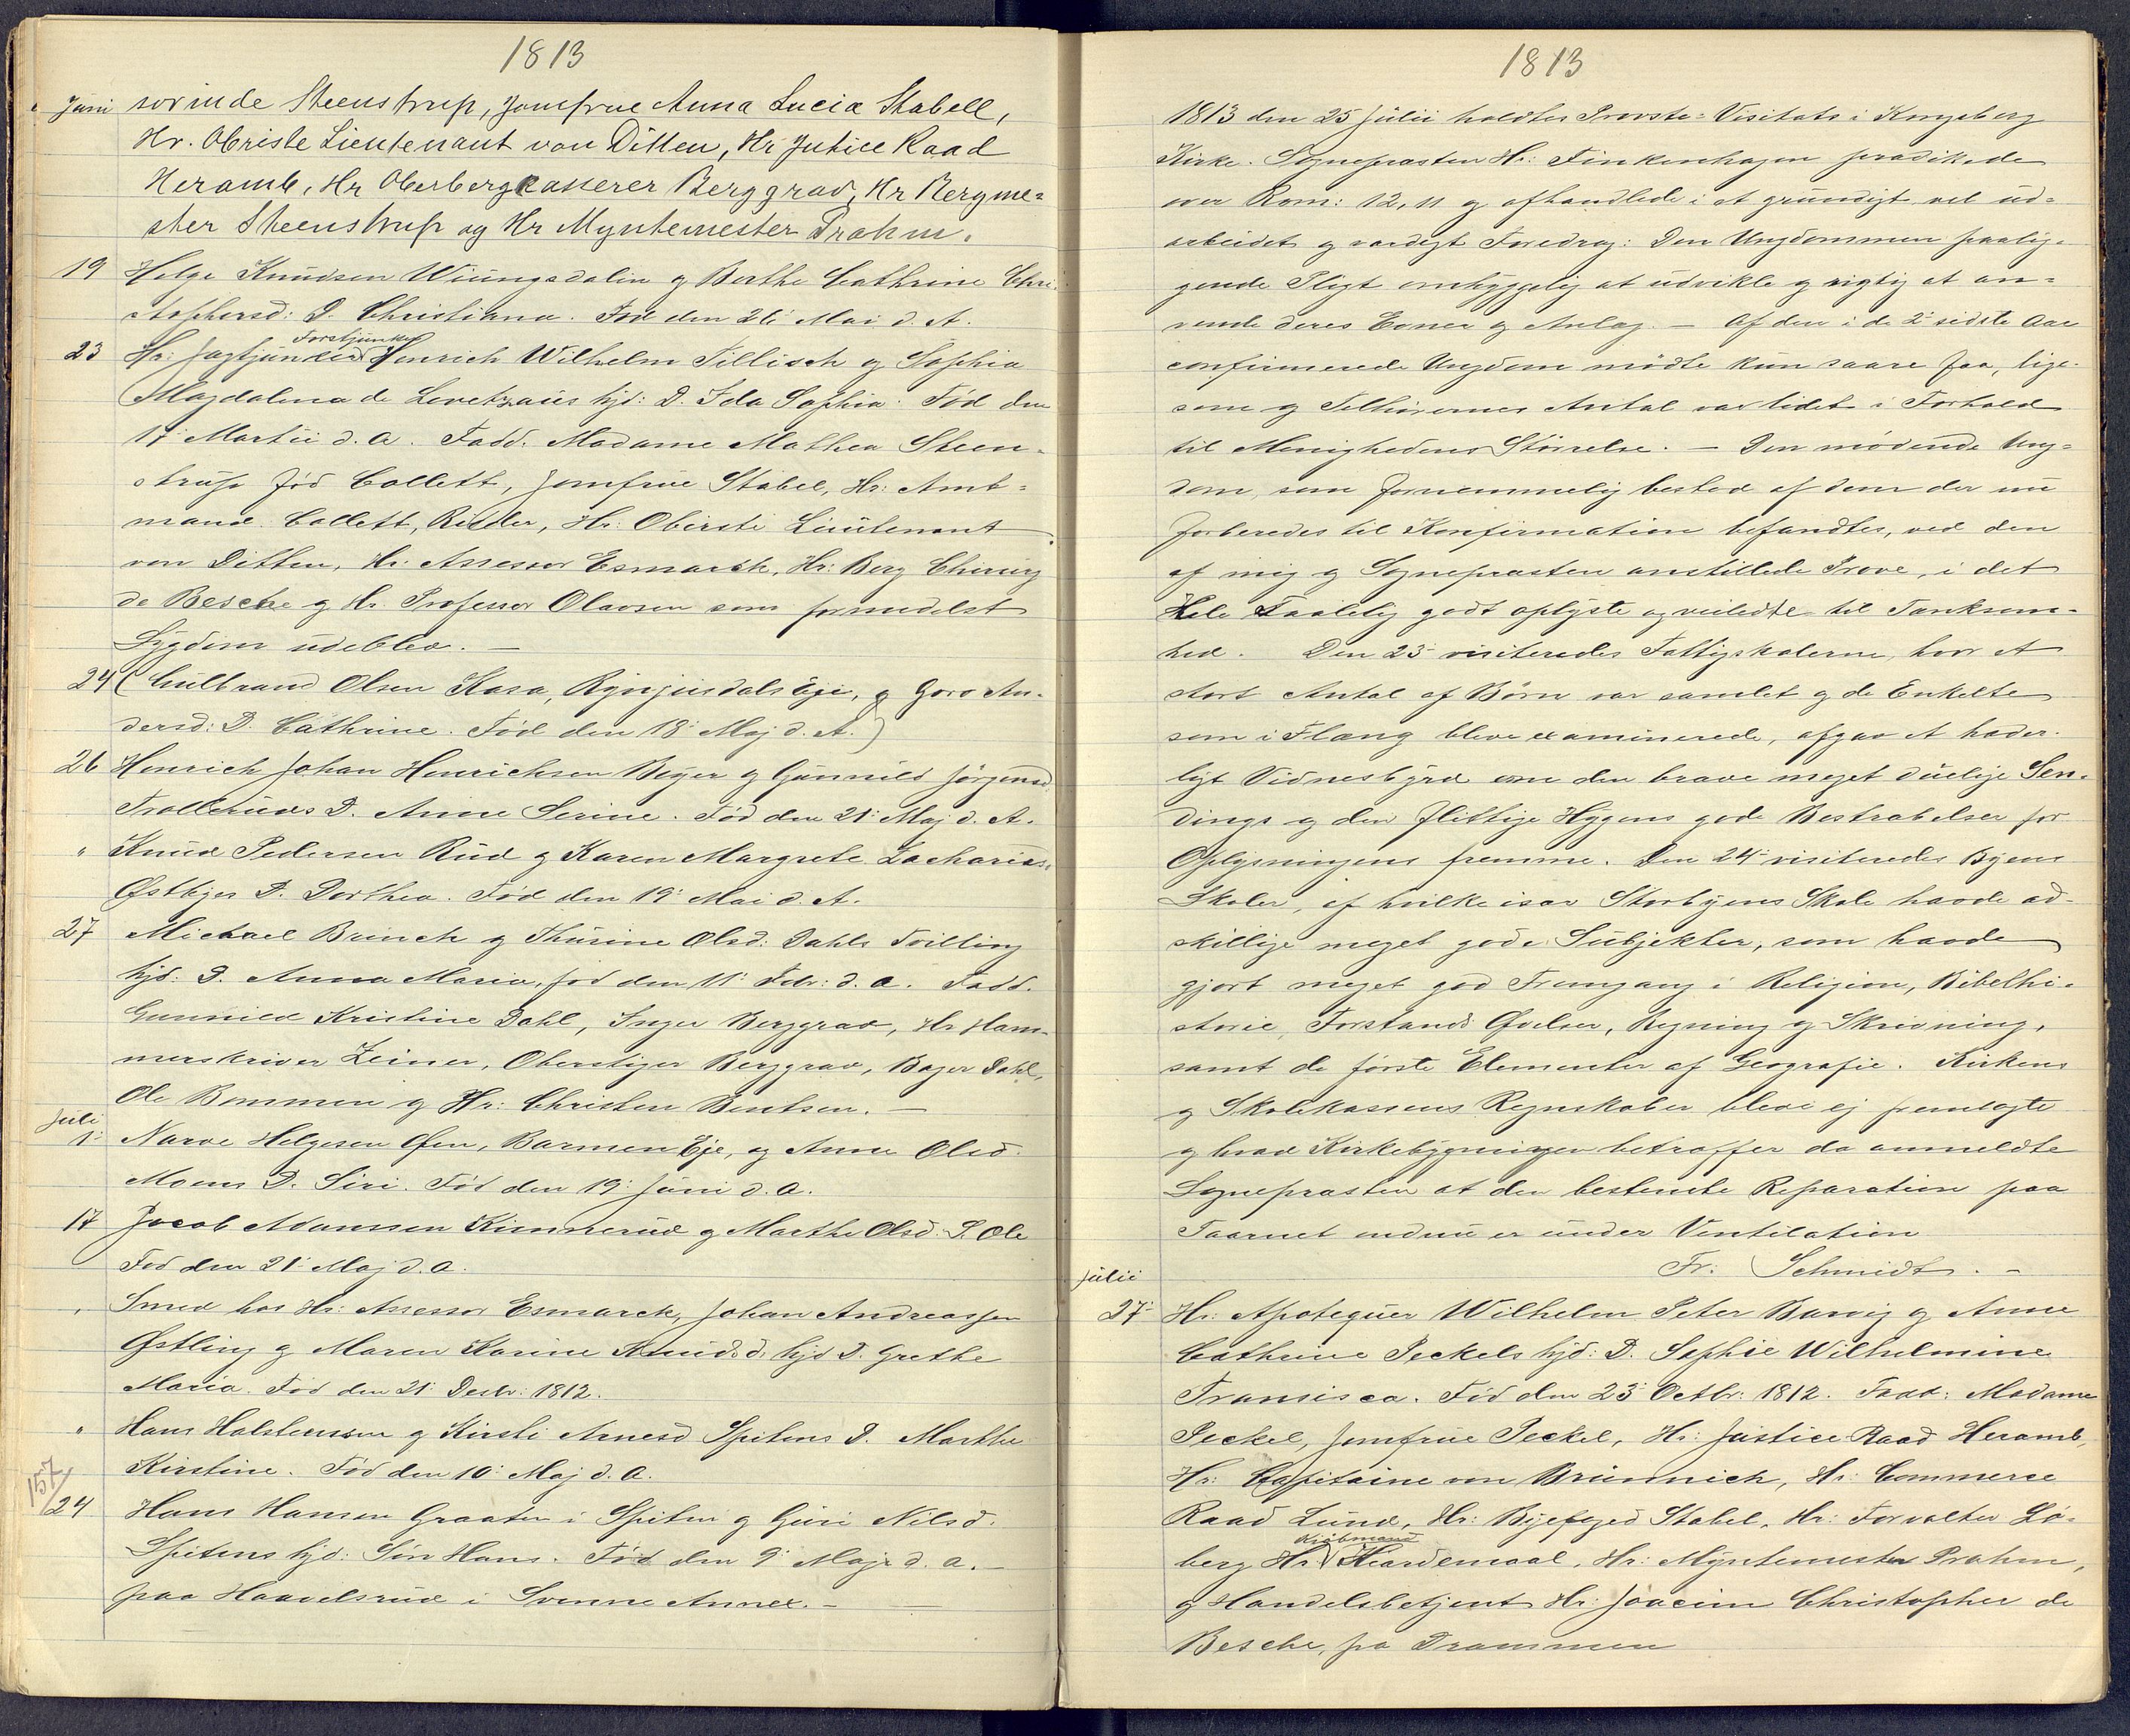 1813
Juni sorinde Steenstrup, Jomfrue Anna Lucia Stabell,
Hr. Obriste Lieutenant von Ditten, Hr Jutice Raad
Heramb, Hr Oberbergcasserer Berggrav, Hr Bergme=
ster Steenstrup og Hr Myntemester Prahm.
19 Helge Knudsen Wiungsdalin g Berthe Cathrine Chri-
stophersd: D. Christiana. Fød den 26' Mai d. A.
Forstjunker
23 Hr: Jagtjunker Henrich Wilhelm Tillisch og Sophia
Magdalena de Levetzaus hjd: D. Ida Sophia. Fød den
17' Martii d. A. Fadd. Madame Mathea Steen-
strup fød Collett, Jomfrue Stabel, Hr: Amt=
mand Collett, Ridder, Hr: Obirste Lieutenant
von Ditten, Hr. Assessor Esmarch, Hr: Berg Chirurg
de Besche g Hr. Professor Olavsen som formedelst
Sygdom udeblev. —
24 (Gulbrand Olsen Kasa, Eje, g Goro An-
dersd: D. Cathrine. Fød den 18' Maj d. A.)
26 Henrich Johan Henrichsen Beyer g Gunnild Jörgensd
Trolleruds D. Anne Serine. Fød den 21' Maj d. A.
" Knud Pedersen Rud g Karen Margrete Zacharias.
Østbyes D. Dorthea. Fød den 19' Mai d. A.
27 Michael Brinch g Thurine Olsd: Dahls Tvilling
hjd: D. Anna Maria, fød den 11' Febr: d. a. Fadd.
Gunnild Kristine Dahl, Inger Berggrav, Hr Ham-
merskriver Zeiner, Oberstiger Berggrav, Bager Dahl,
Ole Bommen g Hr: Christen Bentsen. —
Juli
1' Narve Helgesen Øen, Barmen Eje, og Anne Olsd.
Moens D. Siri. Fød den 19' Juni d. a.
17 Jacob Adamsen Kimerud g Marthe Olsd. S. Ole
Fød den 21' Maj d. a.
" Smed hos Hr: Assessor Esmarck, Johan Andreassen
Østling g Maren Karine Knudsd. hjd D. Grethe
Maria. Fød den 21' Decbr: 1812.
" Hans Holstensen g Kirsti Arnesd Spitens D. Marthe
Kirstine. Fød den 10' Maj d. a.
157/
24 Hans Hansen Graaten i Spiten g Guri Nilsd.
Spitens hjd: Søn Hans. Fød den 9' Maji d. a. —
paa Haavelsrud i Svenne Annex. —
1813
1813 den 25 Julii holdtes Provste=Visitats i Kongsberg
Kirke. Sognepræsten Hr: Finkenhagen prædikede
over Rom: 12, 11 g afhandlede i et grundigt vel ud=
arbeidet g værdigt Foredrag: Den Ungdommen paalig-
gende Pligt omhyggelig at udvikle g rigtig at an=
vende deres Evner g Anlæg. — Af den i de 2' sidste Aar
confirmerede Ungdom mødte kun saare faa, lige-
som g Tilhørernes Antal var lidet i Forhold
til Menighedens Størrelse. — Den mødende Ung=
dom, som fornemmelig bestod af dem der nu
forberedes til Konfirmation befandtes, ved den
af mig g Sognepræsten anstillede Prøve, i det
Hele taalelig godt oplyste og veiledte til Tænksom-
hed. Den 23' visiteredes Fattigskolerne, hvor et
stort Antal af Børn var samlet g de Enkelte
som i Flæng bleve examinerede, afgav et hæder-
ligt Vidnesbyrd om den brave meget duelige Sen-
dings g den flittige Hygens gode Bestræbelser for
Oplysningens fremme. Den 24' visiteredes Byens
Skoler, af hvilke især Storbyens Skole havde ad-
skillige meget gode Subjekter, som havde
gjort meget god Fremgang i Religion, Bibelhi-
storie, Forstands Øvelser, Regning g Skrivning,
samt de første Elementer af Geografie. Kirkens
g Skolekassens Regnskaber bleve ej fremlagte
g hvad Kirkebygningen betræffer da anmeldte
Sognepræsten at den bestemte Reparation paa
Taarnet endnu er under Ventilation
Fr: Schmidt. —
Julii
27' Hr: Apotequer Wilhelm Peter Barvig g Anne
Cathrine Peckels hjd: D. Sophie Wilhelmine
Fransisca. Fød den 23' Octbr: 1812. Fadd: Madame
Peckel, Jomfrue Peckel, Hr: Justice Raad Heramb,
Hr: Capitaine von Brünnich, Hr: Commerce
Raad Lund, Hr: Byefoged Stabel, Hr: Forvalter Lø-
Kiöbmand
berg Hr Kiærdemaal, Hr: Myntemester Prahm,
g Handelsbetjent Hr: Joacim Christopher de
Besche, fra Drammen